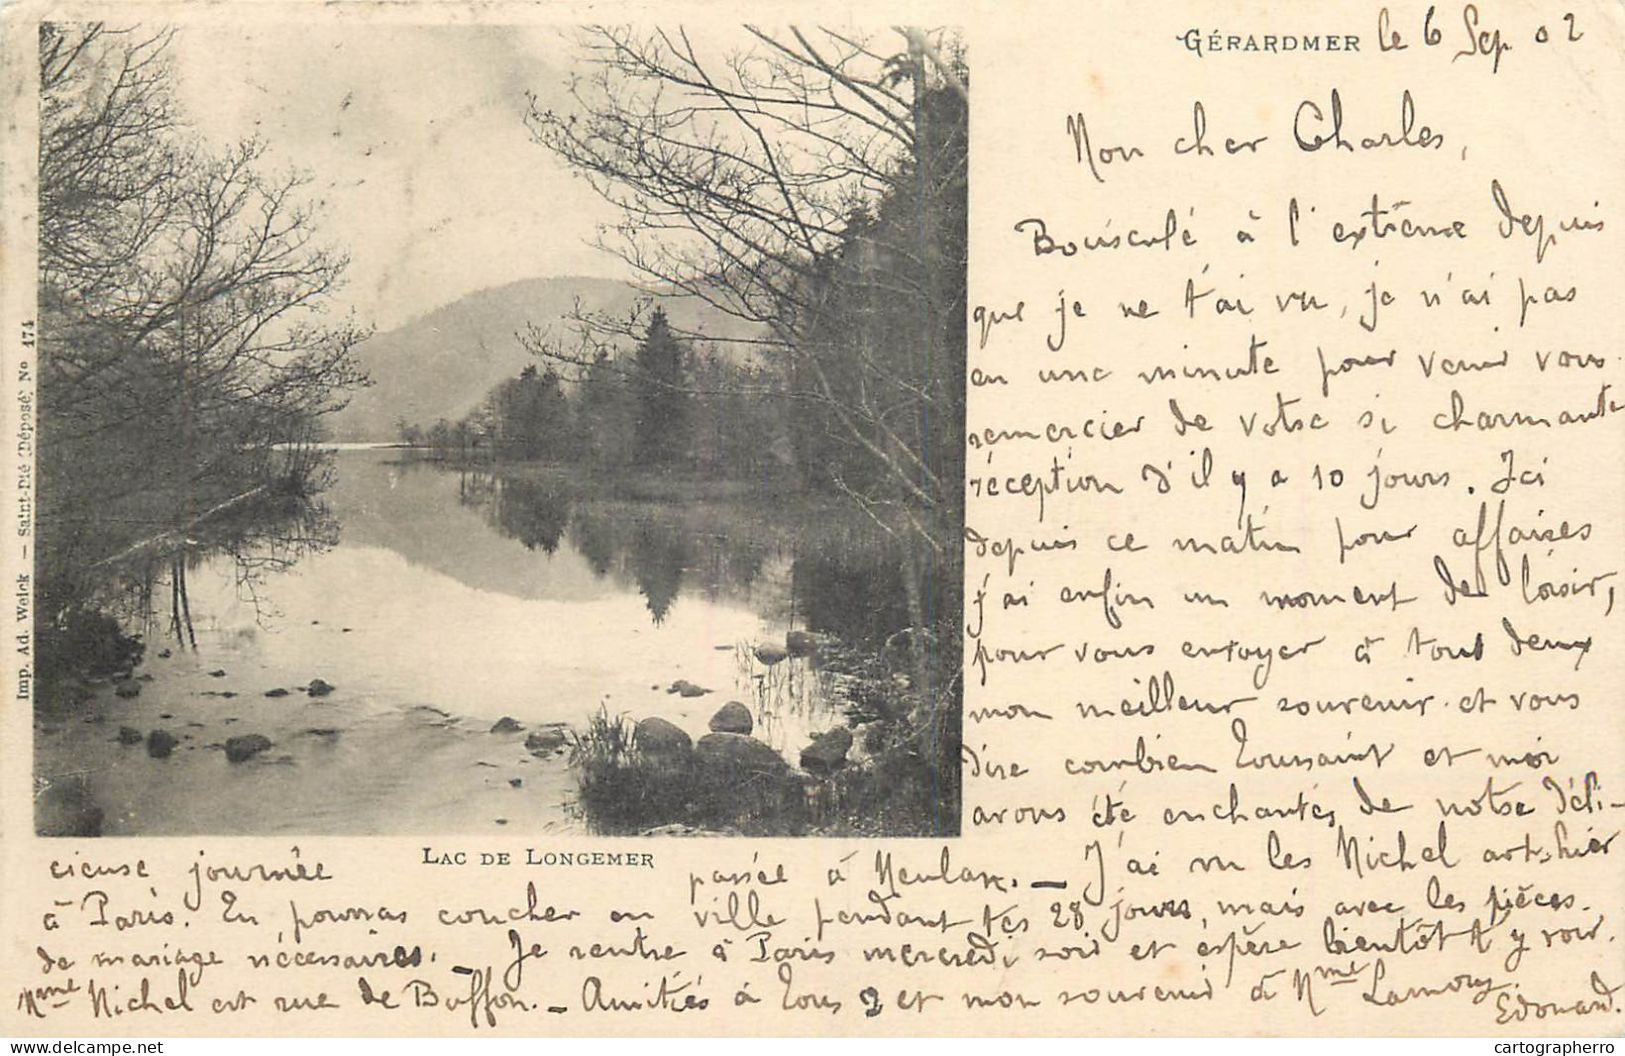 GÉRARDMER le 6 Sep 02
Mon cher Charles,
Bousculé à l'extrême depuis
que je ne t'ai vu, je n'ai pas
eu une minute pour venir vous
remercier de votre si charmante
réception d'il y a 10 jours. Ici
depuis ce matin pour affaires
j'ai enfin un moment de loisir,
pour vous envoyer à tous deux
mon meilleur souvenir et vous
dire combien Toussaint et moi
avons été enchantés de notre déli-
cieuse journée passée à Meulan. — J'ai vu les Michel avt-hier
à Paris. Tu pourras coucher en ville pendant tes 28 jours, mais avec les pièces
de mariage nécessaires. — Je rentre à Paris mercredi soir et espère bientôt t'y voir.
Mme Michel est rue de Buffon. — Amitiés à tous 2 et mon souvenir à Mme Lamory.
Edouard.
LAC DE LONGEMER
Imp. Ad. Weick — Saint-Dié (Déposé) No 174
cartographerro